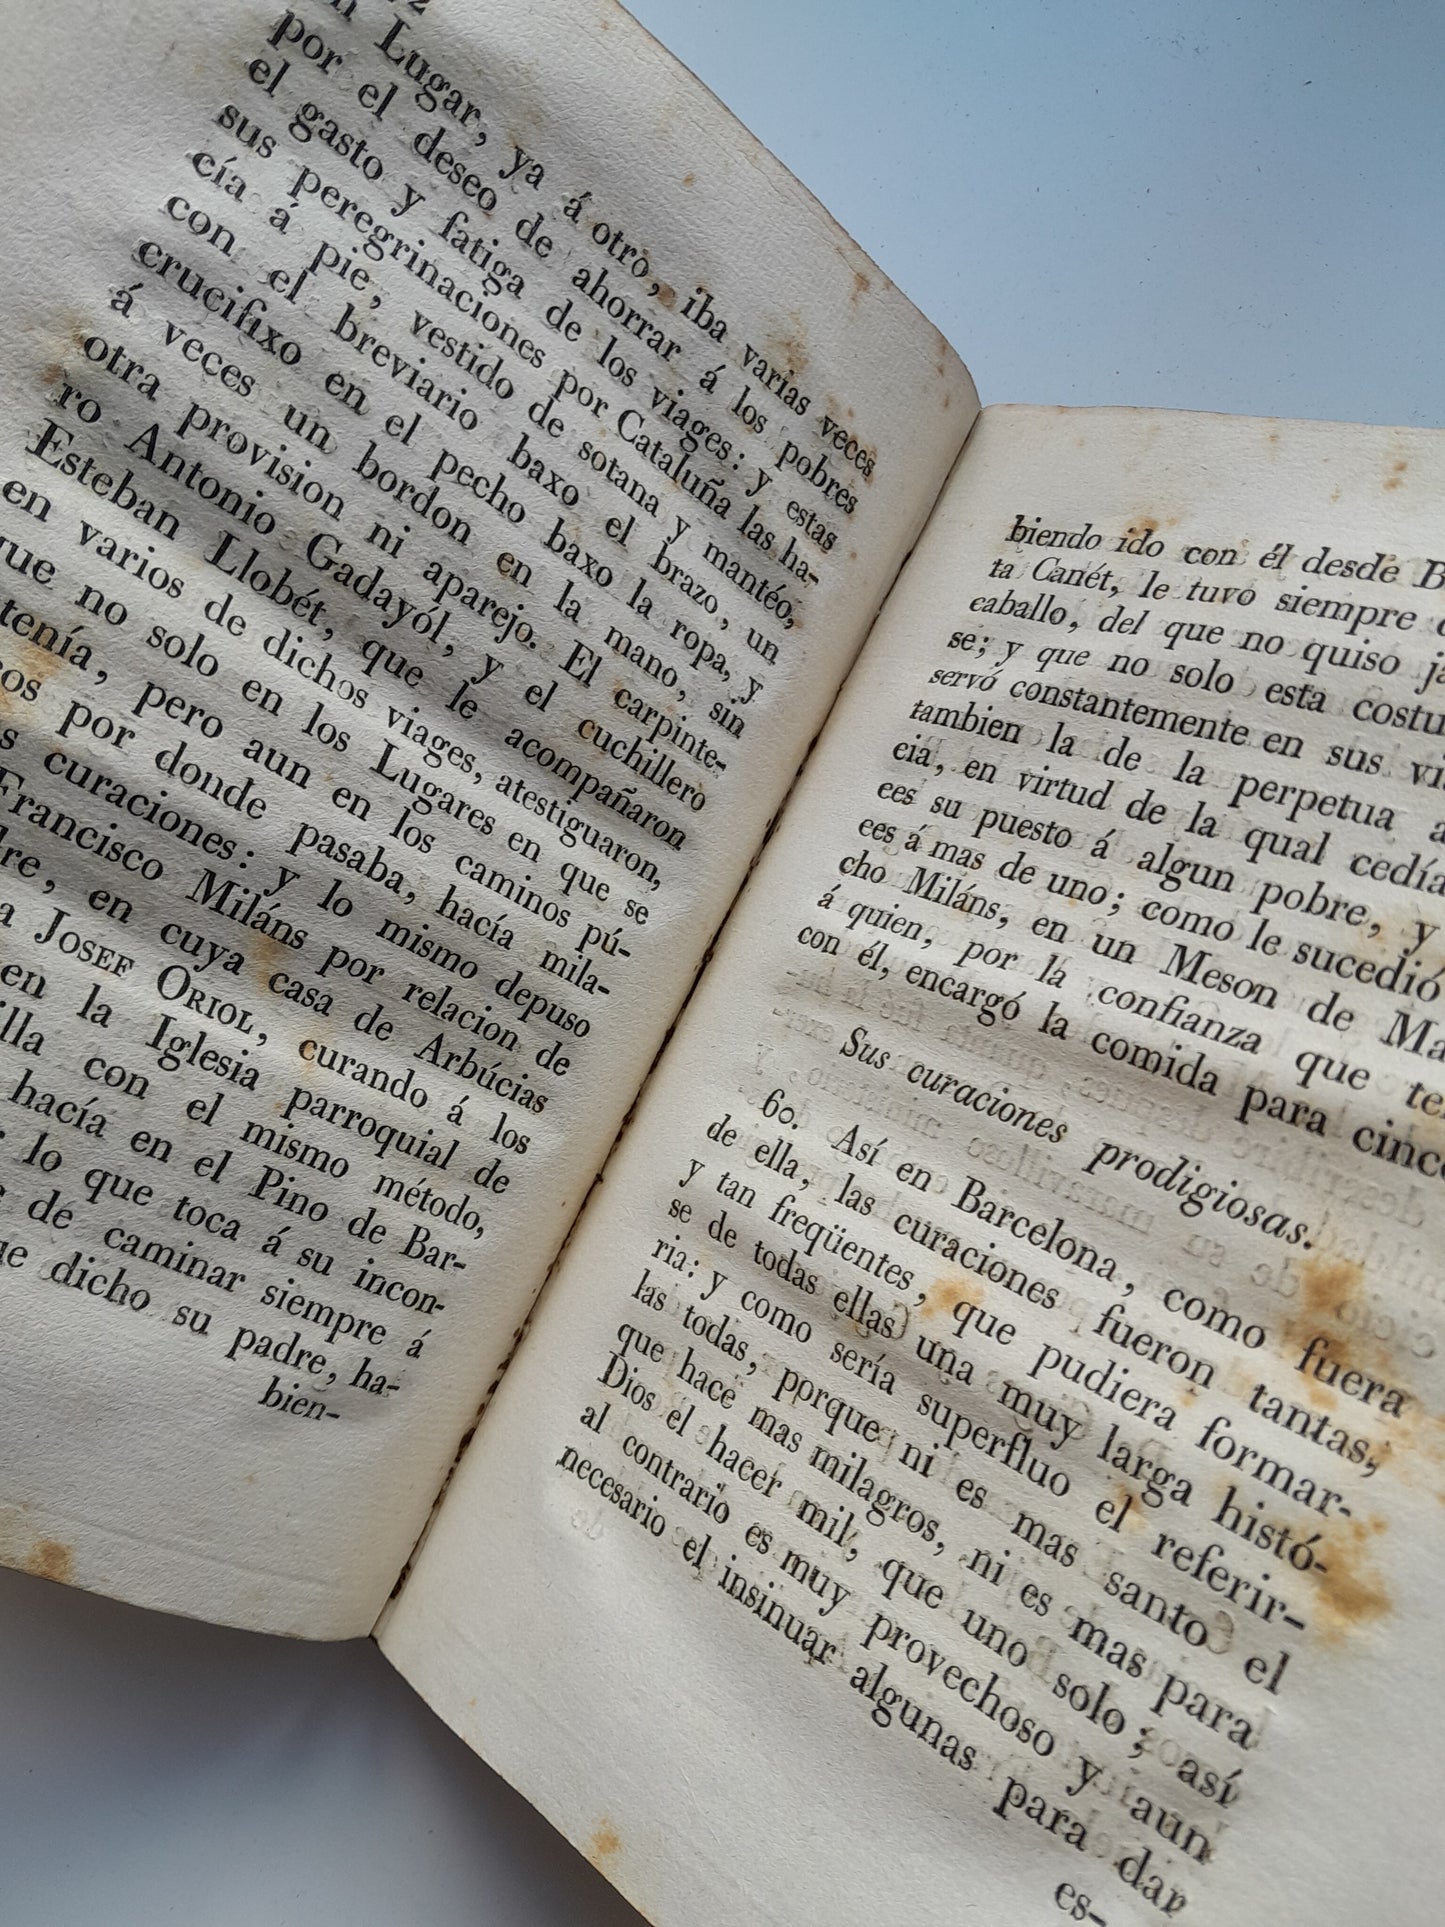 Lugar, ya á otro, iba varias veces
por el deseo de ahorrar á los pobres
el gasto y fatiga de los viages: y estas
sus peregrinaciones por Cataluña las ha-
cía á pie, vestido de sotana y mantéo,
con el breviario baxo el brazo, un
crucifixo en el pecho baxo la ropa, y
á veces un bordon en la mano, sin
otra provision ni aparejo. El carpinte-
ro Antonio Gadayól, y el cuchillero
Esteban Llobét, que le acompañaron
en varios de dichos viages, atestiguaron,
que no solo en los Lugares en que se
tenía, pero aun en los caminos pú-
cos por donde pasaba, hacía mila-
s curaciones: y lo mismo depuso
Francisco Miláns por relacion de
dre, en cuya casa de Arbúcias
a JOSEF ORIOL, curando á los
en la Iglesia parroquial de
illa con el mismo método,
hacía en el Pino de Bar-
lo que toca á su incon-
de caminar siempre á
ue dicho su padre, ha-
bien-
biendo ido con él desde B
ta Canét, le tuvo siempre
caballo, del que no quiso ja
se; y que no solo esta costu
servó constantemente en sus via
tambien la de la perpetua a
cia, en virtud de la qual cedía
ces su puesto á algun pobre, y
ces á mas de uno; como le sucedió
cho Miláns, en un Meson de Ma
á quien, por la confianza que te
con él, encargó la comida para cinco
Sus curaciones prodigiosas.
60. Así en Barcelona, como fuera
de ella, las curaciones fueron tantas,
y tan freqüentes, que pudiera formar-
se de todas ellas una muy larga histó-
ria: y como sería superfluo el referir-
las todas, porque ni es mas santo el
que hace mas milagros, ni es mas para
Dios el hacer mil, que uno solo; así
al contrario es muy provechoso y aun
necesario el insinuar algunas para dar
es-